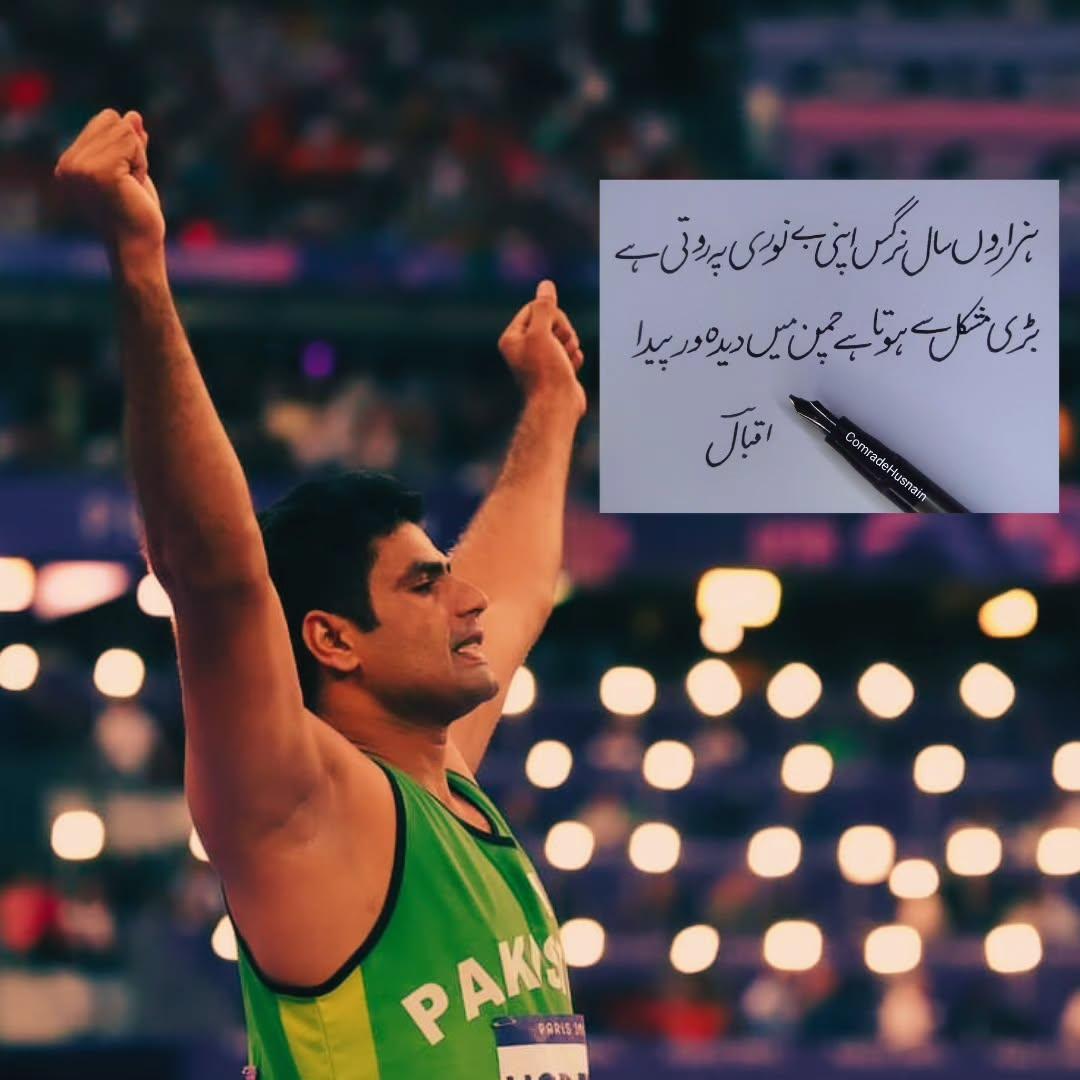 ہزاروں سال نرگس اپنی بے نوری پہ روتی ہے
بڑی مشکل سے ہوتا ہے چمن میں دیدہ ور پیدا
اقبال
ComradeHusnain
PAKIS
PARIS